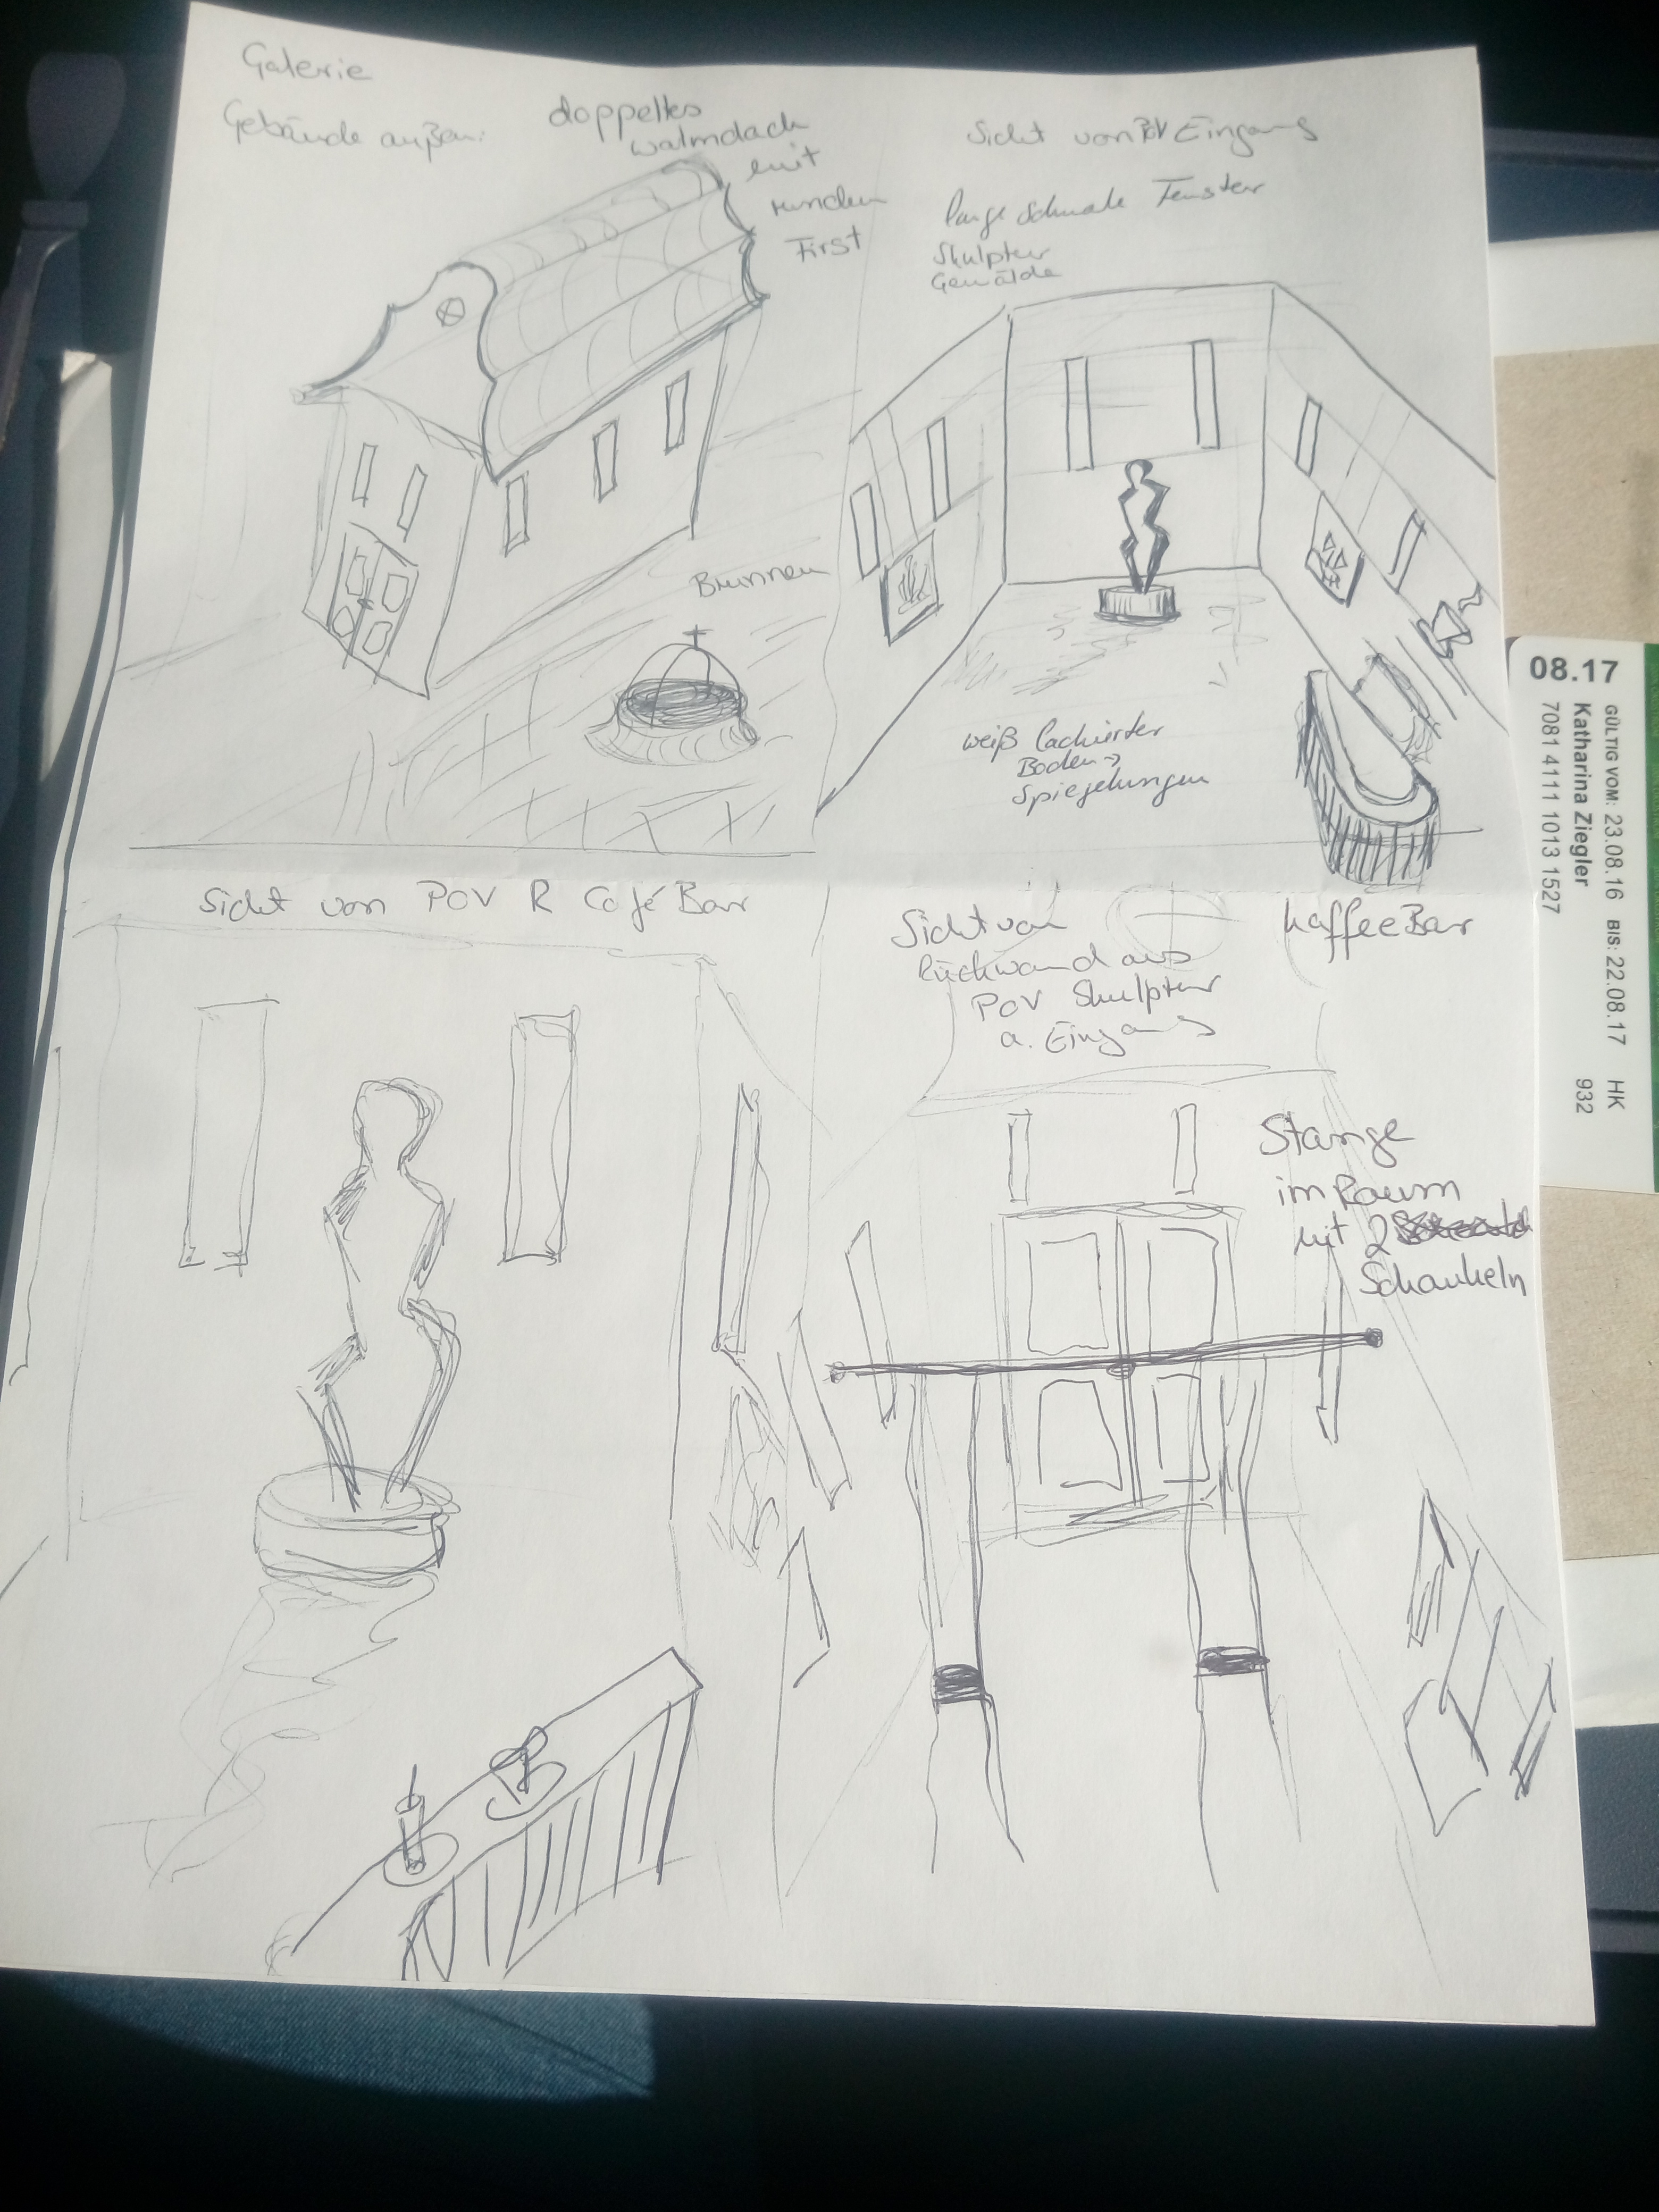 Galerie
Gebäude außen:
doppeltes
walmdach
mit
runden
First
Brunnen
Sicht von POV Eingang
lange schmale Fenster
Skulptur
Gemälde
weiß lackierter
Boden →
Spiegelungen
Sicht von POV R Café Bar
Sicht von
Rückwand aus
POV Skulptur
a. Eingang
kaffee Bar
Stange
im Raum
mit 2
Schaukeln
08.17
GÜLTIG VOM: 23.08.16 BIS: 22.08.17 HK
Katharina Ziegler 932
7081 4111 1013 1527